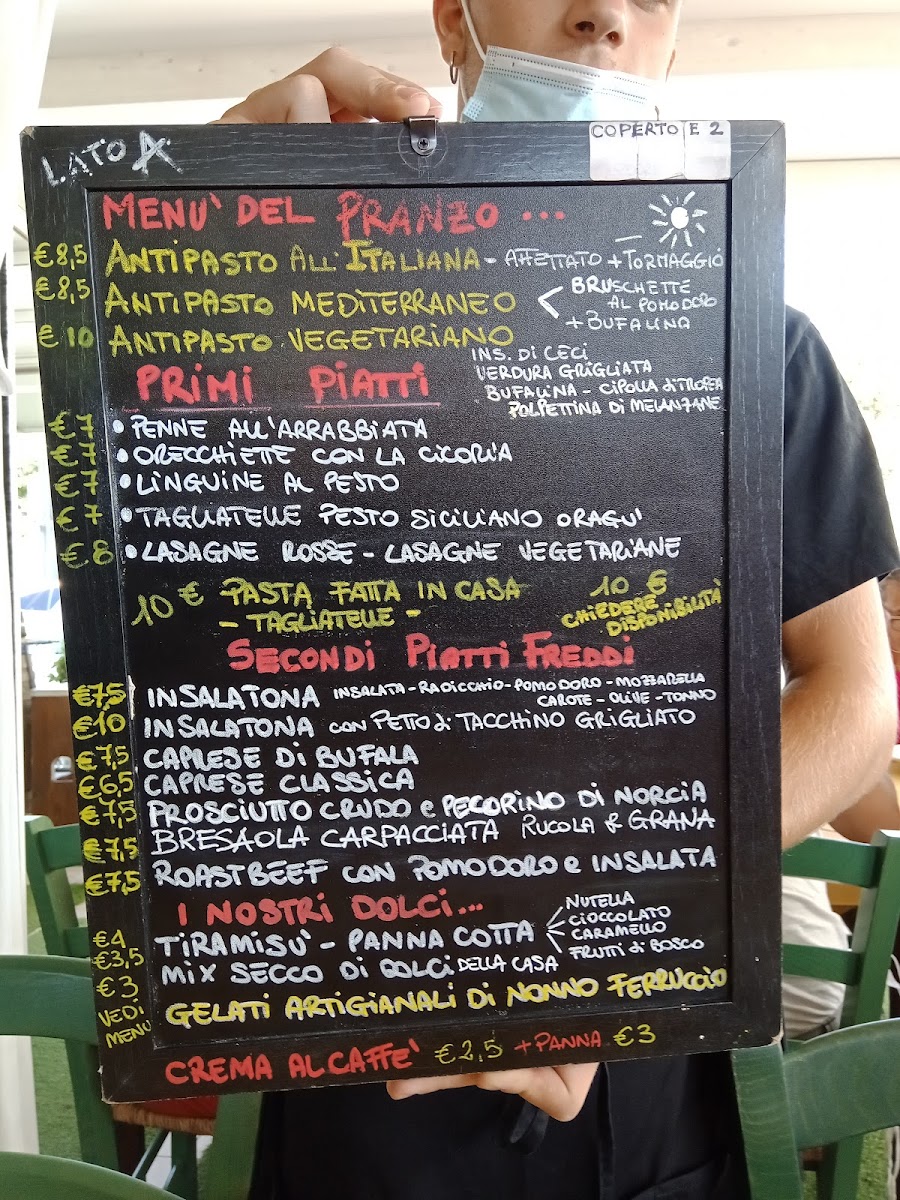 LATO A
COPERTO E 2
MENU' DEL PRANZO ...
€8,5 ANTIPASTO ALL'ITALIANA - AFFETTATO + FORMAGGIO
€8,5 ANTIPASTO MEDITERRANEO BRUSCHETTE
AL POMODORO
+ BUFALINA
€10 ANTIPASTO VEGETARIANO
INS. DI CECI
VERDURA GRIGLIATA
BUFALINA - CIPOLLA di TROPEA
POLPETTINA DI MELANZANE
PRIMI PIATTI
€7 • PENNE ALL'ARRABBIATA
€7 • ORECCHIETTE CON LA CICORIA
€7 • LINGUINE AL PESTO
€7 • TAGLIATELLE PESTO SICILIANO O RAGU'
€8 • LASAGNE ROSSE - LASAGNE VEGETARIANE
10 € PASTA FATTA IN CASA 10 €
- TAGLIATELLE - CHIEDERE
DISPONIBILITÀ
SECONDI PIATTI FREDDI
€7,5 INSALATONA INSALATA - RADICCHIO - POMODORO - MOZZARELLA
CAROTE - OLIVE - TONNO
€10 INSALATONA CON PETTO di TACCHINO GRIGLIATO
€7,5 CAPRESE DI BUFALA
€6,5 CAPRESE CLASSICA
€7,5 PROSCIUTTO CRUDO e PECORINO DI NORCIA
€7,5 BRESAOLA CARPACCIATA RUCOLA & GRANA
€7,5 ROASTBEEF CON POMODORO e INSALATA
I NOSTRI DOLCI...
€4 TIRAMISU' - PANNA COTTA NUTELLA
CIOCCOLATO
CARAMELLO
FRUTTI di BOSCO
€3,5
€3 MIX SECCO DI DOLCI DELLA CASA
VEDI
MENU GELATI ARTIGIANALI DI NONNO FERRUCCIO
CREMA AL CAFFE' €2,5 + PANNA €3